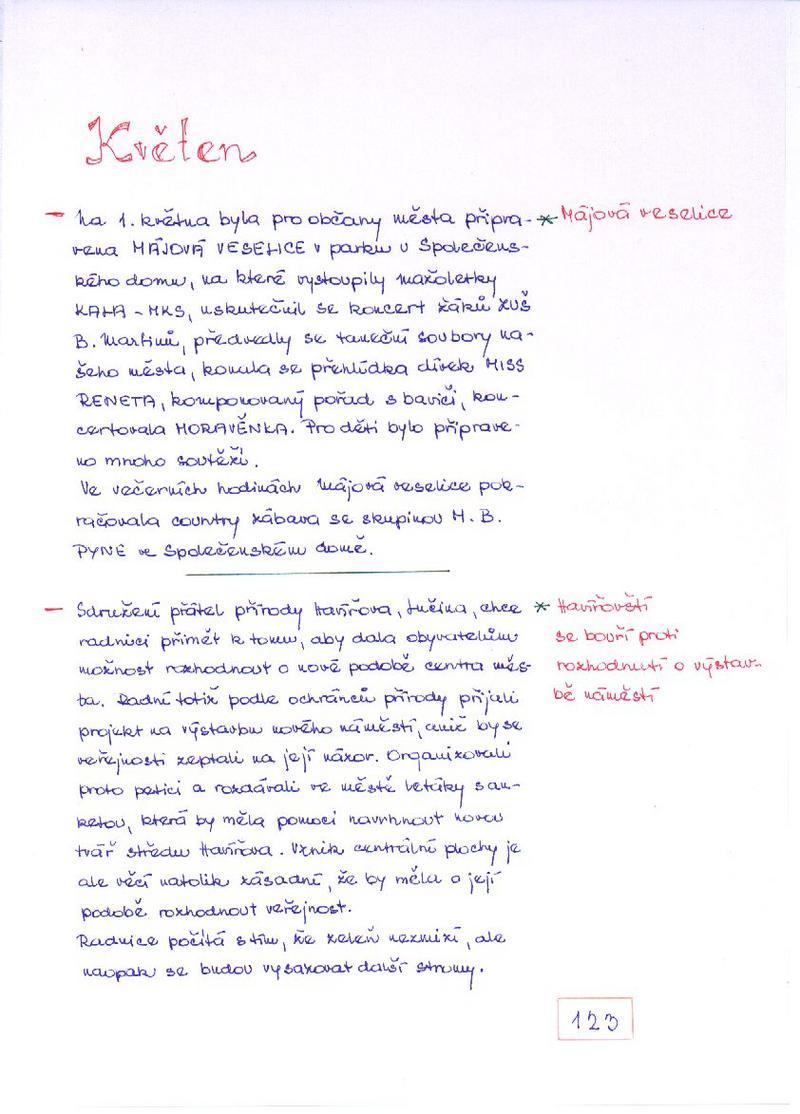 Květen
– Na 1. května byla pro občany města připra- * Májová veselice
vena MÁJOVÁ VESELICE v parku u Společens-
kého domu, na které vystoupily mažoretky
KAHA - MKS, uskutečnil se koncert žáků ZUŠ
B. Martinů, předvedly se taneční soubory na-
šeho města, konala se přehlídka dívek MISS
RENETA, komponovaný pořad s baviči, kon-
certovala MORAVĚNKA. Pro děti bylo připrave-
no mnoho soutěží.
Ve večerních hodinách Májová veselice pok-
račovala country zábava se skupinou H. B.
PYNE ve Společenském domě.
– Sdružení přátel přírody Havířova, Lučina, chce * Havířovští
radnici přimět k tomu, aby dala obyvatelům se bouří proti
možnost rozhodnout o nové podobě centra měs- rozhodnutí o výstav-
ta. Radní totiž podle ochránců přírody přijali bě náměstí
projekt na výstavbu nového náměstí, aniž by se
veřejnosti zeptali na její názor. Organizovali
proto petici a rozdávali ve městě letáky s an-
ketou, která by měla pomoci navrhnout novou
tvář středu Havířova. Vznik centrální plochy je
ale věcí natolik zásadní, že by měla o její
podobě rozhodnout veřejnost.
Radnice počítá s tím, že zeleň nezmizí, ale
naopak se budou vysazovat další stromy.
123